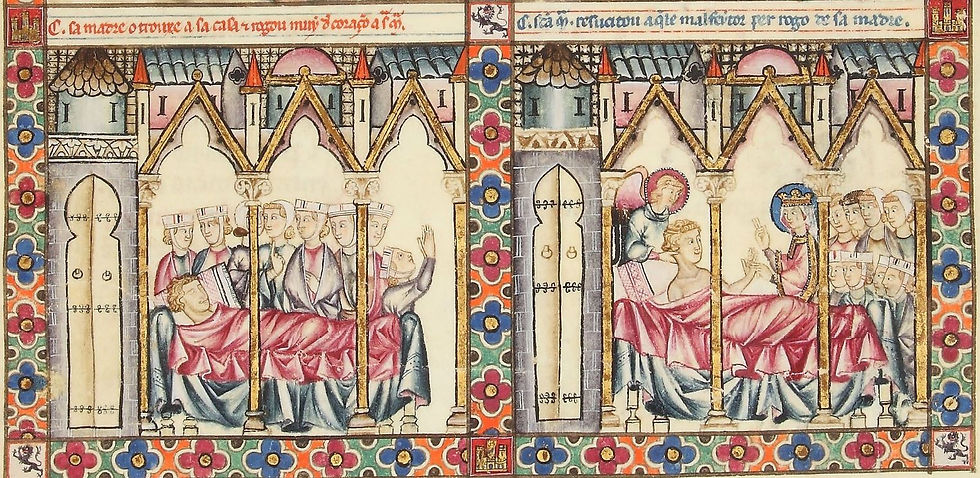 C. sa madre o trouxe a sa casa ⁊ rogou muy d̃ coraçõ a s̃. M̃.
C. sc̃a M̃. resucitou aq̃le malfeitor per rogo de sa madre.